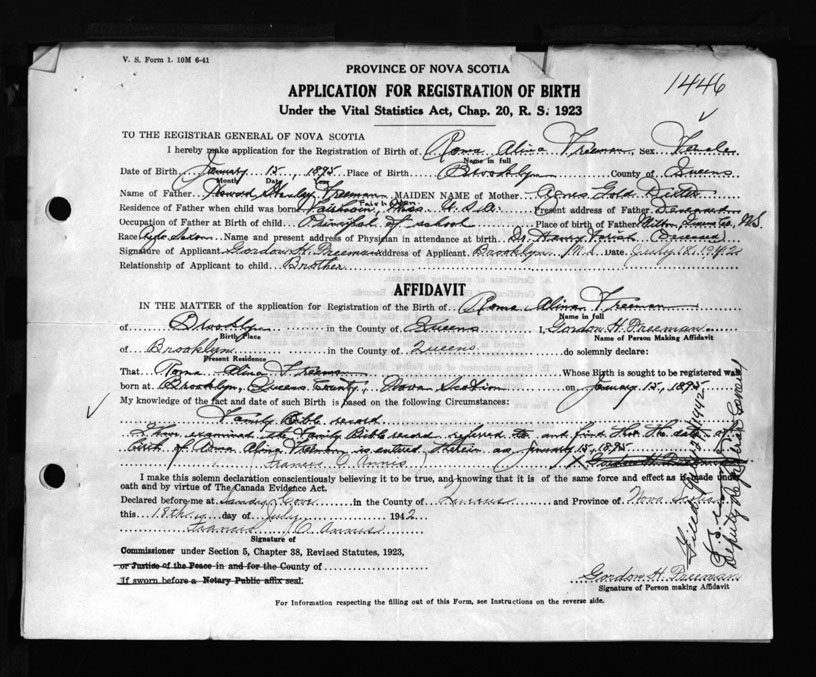 V. S. Form 1. 10M 6-41
PROVINCE OF NOVA SCOTIA
1446
APPLICATION FOR REGISTRATION OF BIRTH
Under the Vital Statistics Act, Chap. 20, R. S. 1923
TO THE REGISTRAR GENERAL OF NOVA SCOTIA
I hereby make application for the Registration of Birth of Roma Alina Freeman Sex Female
Name in full
Date of Birth January 15, 1895 Place of Birth Brooklyn County of Queens
Month Date
Name of Father Howard Stanley Freeman MAIDEN NAME of Mother Agnes Gold
Residence of Father when child was born Fairhaven, Mass. U.S.A. Present address of Father Deceased
Occupation of Father at Birth of child Principal of school Place of birth of Father Milton Queens Co. N.S.
Race Anglo Saxon Name and present address of Physician in attendance at birth Dr. Henry Deceased
Signature of Applicant Gordon H. Freeman Address of Applicant Brooklyn N.S. Date July 18, 1942
Relationship of Applicant to child Brother
AFFIDAVIT
IN THE MATTER of the application for Registration of the Birth of Roma Alina Freeman
Name in full
of Brooklyn in the County of Queens I, Gordon H. Freeman
Birth Place Name of Person Making Affidavit
of Brooklyn in the County of Queens do solemnly declare:
Present Residence
That Roma Alina Freeman Whose Birth is sought to be registered was
born at Brooklyn, Queens County, Nova Scotia on January 15, 1895
My knowledge of the fact and date of such Birth is based on the following Circumstances:
Family Bible record
I have examined the Family Bible record referred to and find that the date of
birth of Roma Alina Freeman is entered therein as January 15, 1895
Francis O Annis
I make this solemn declaration conscientiously believing it to be true, and knowing that it is of the same force and effect as if made under
oath and by virtue of The Canada Evidence Act.
Declared before me at Sandy Cove in the County of Queens and Province of Nova Scotia
this 18th day of July 1942
Francis O Annis
Signature of
Commissioner under Section 5, Chapter 38, Revised Statutes, 1923,
or Justice of the Peace in and for the County of
If sworn before a Notary Public affix seal.
Gordon H. Freeman
Signature of Person making Affidavit
For Information respecting the filling out of this Form, see Instructions on the reverse side.
1942
Deputy Registrar General